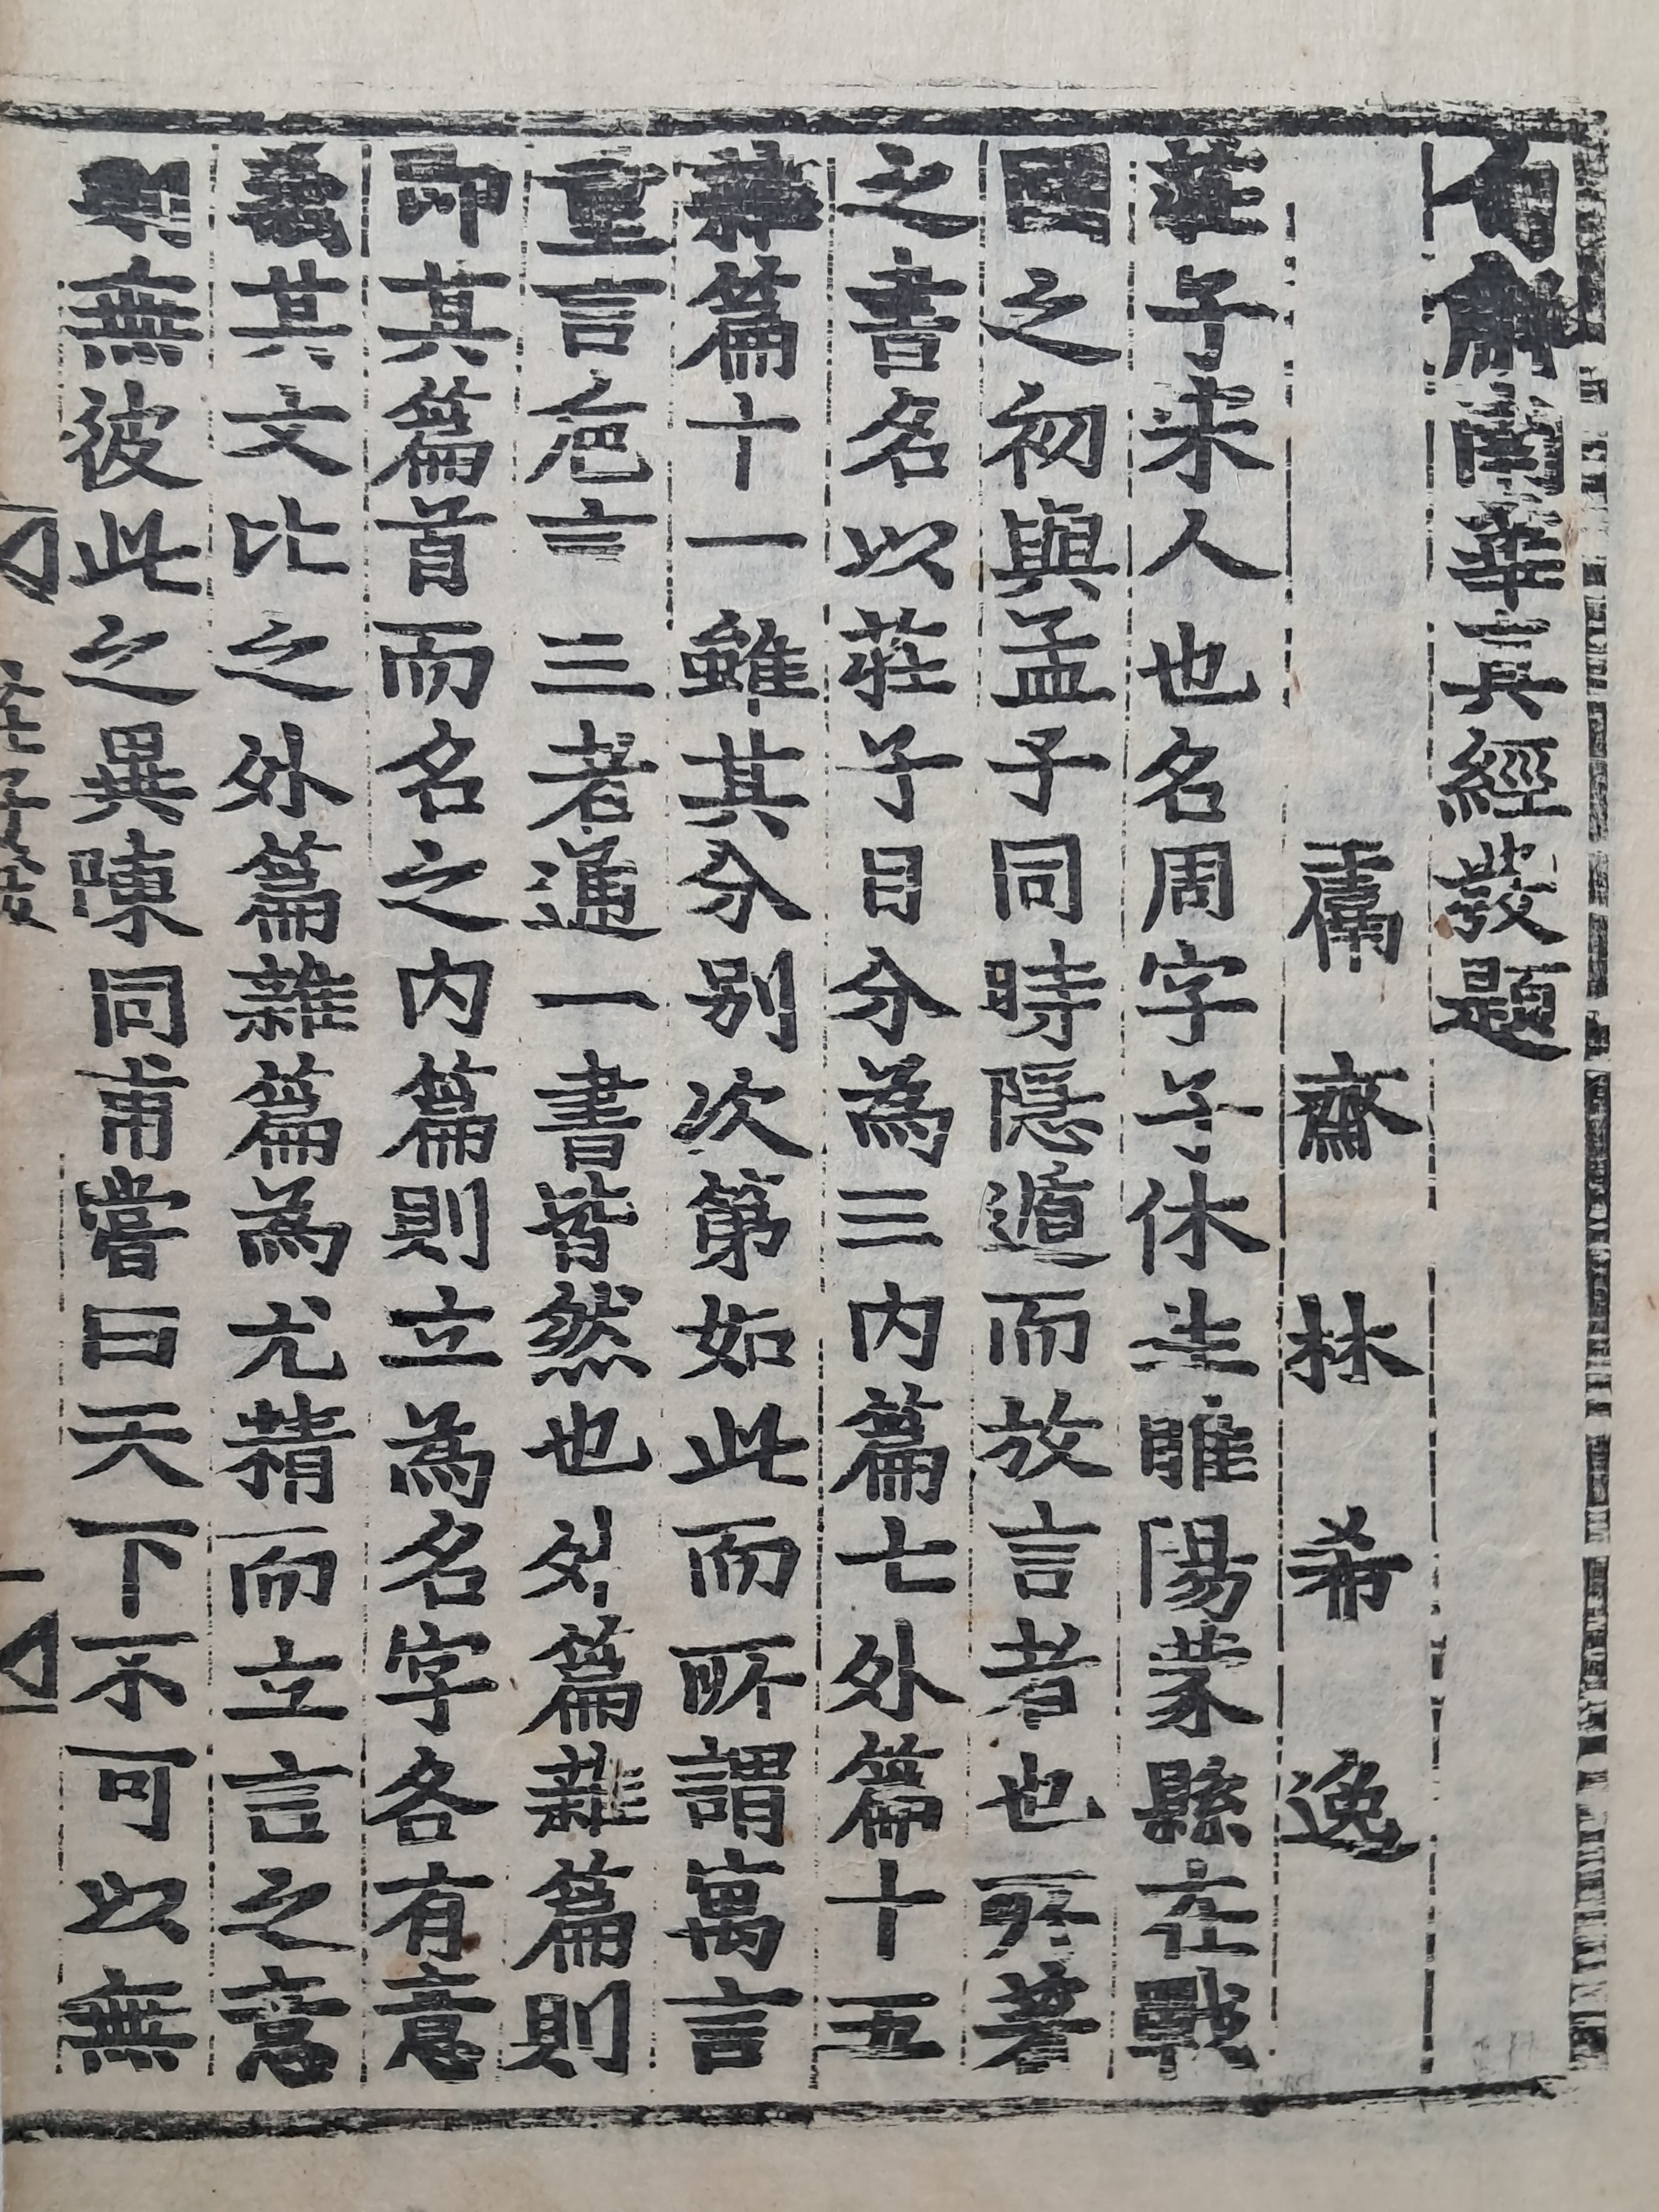 句解南華眞經發題
鬳齋林希逸
莊子宋人也名周字子休生睢陽蒙縣在戰
國之初與孟子同時隱遁而放言者也所著
之書名以莊子自分為三内篇七外篇十五
雜篇十一雖其分别次第如此而所謂萬言
重言巵言三者通一書皆然也外篇雜篇則
即其篇首而名之内篇則立為名字各有意
義其文比之外篇雜篇為尤精而立言之意
則無彼此之異陳同甫嘗曰天下不可以無